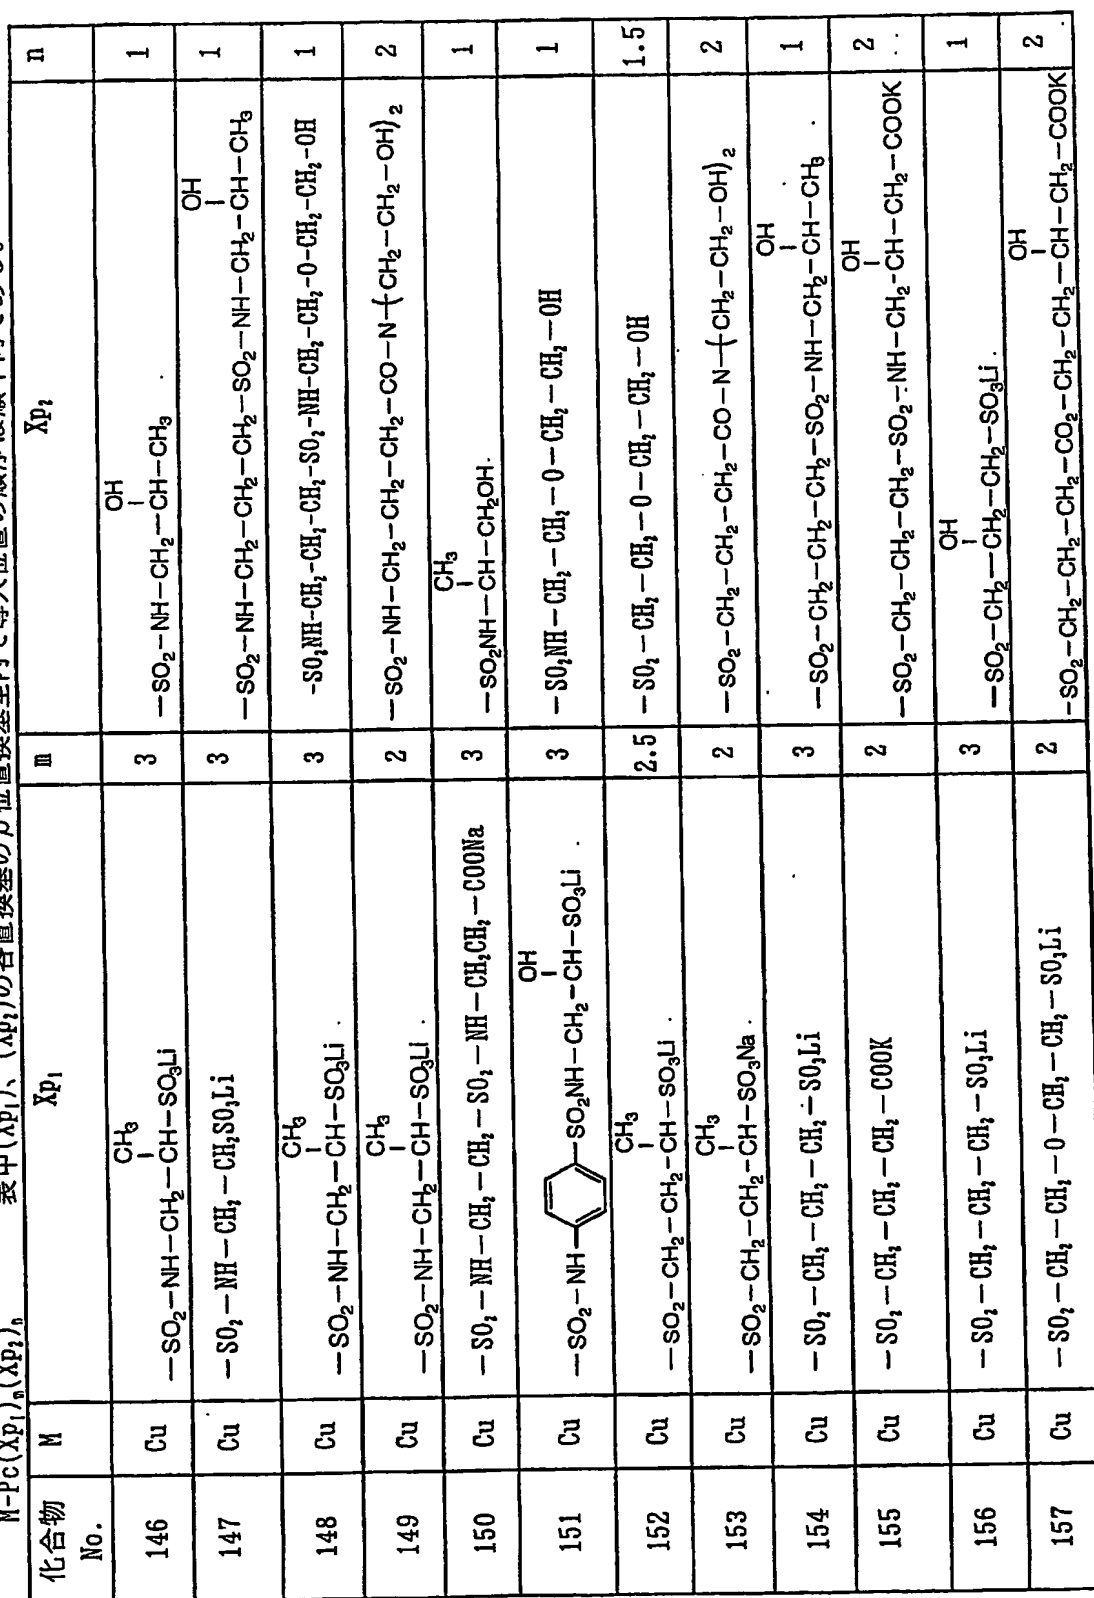 M-Pc(Xp₁)ₘ(Xp₂)ₙ 表中(Xp₁)、(Xp₂)の各置換基のβ位置換基型内で導入位置の順序は順不同である。
化合物 No. M Xp₁ m Xp₂ n
146 Cu —SO₂—NH—CH₂—CH(CH₃)—SO₃Li 3 —SO₂—NH—CH₂—CH(OH)—CH₃ 1
147 Cu —SO₂—NH—CH₂—CH₂SO₃Li 3 —SO₂—NH—CH₂—CH₂—CH₂—SO₂—NH—CH₂—CH(OH)—CH₃ 1
148 Cu —SO₂—NH—CH₂—CH(CH₃)—SO₃Li 3 -SO₂NH-CH₂-CH₂-CH₂-SO₂-NH-CH₂-CH₂-O-CH₂-CH₂-OH 1
149 Cu —SO₂—NH—CH₂—CH(CH₃)—SO₃Li 2 —SO₂—NH—CH₂—CH₂—CH₂—CO—N—(CH₂—CH₂—OH)₂ 2
150 Cu —SO₂—NH—CH₂—CH₂—SO₂—NH—CH₂CH₂—COONa 3 —SO₂NH—CH(CH₃)—CH₂OH 1
151 Cu —SO₂—NH— —SO₂NH—CH₂—CH(OH)—CH—SO₃Li 3 —SO₂NH—CH₂—CH₂—CH₂—O—CH₂—CH₂—OH 1
152 Cu —SO₂—CH₂—CH₂—CH(CH₃)—SO₃Li 2.5 —SO₂—CH₂—CH₂—O—CH₂—CH₂—OH 1.5
153 Cu —SO₂—CH₂—CH₂—CH(CH₃)—SO₃Na 2 —SO₂—CH₂—CH₂—CH₂—CO—N—(CH₂—CH₂—OH)₂ 2
154 Cu —SO₂—CH₂—CH₂—CH₂—SO₃Li 3 —SO₂—CH₂—CH₂—CH₂—SO₂—NH—CH₂—CH(OH)—CH₃ 1
155 Cu —SO₂—CH₂—CH₂—CH₂—COOK 2 —SO₂—CH₂—CH₂—CH₂—SO₂—NH—CH₂—CH(OH)—CH₂—COOK 2
156 Cu —SO₂—CH₂—CH₂—CH₂—SO₃Li 3 —SO₂—CH₂—CH(OH)—CH₂—CH₂—SO₃Li 1
157 Cu —SO₂—CH₂—CH₂—O—CH₂—CH₂—SO₃Li 2 -SO₂—CH₂—CH₂—CH₂—CO₂—CH₂—CH₂—CH(OH)—CH₂—COOK 2